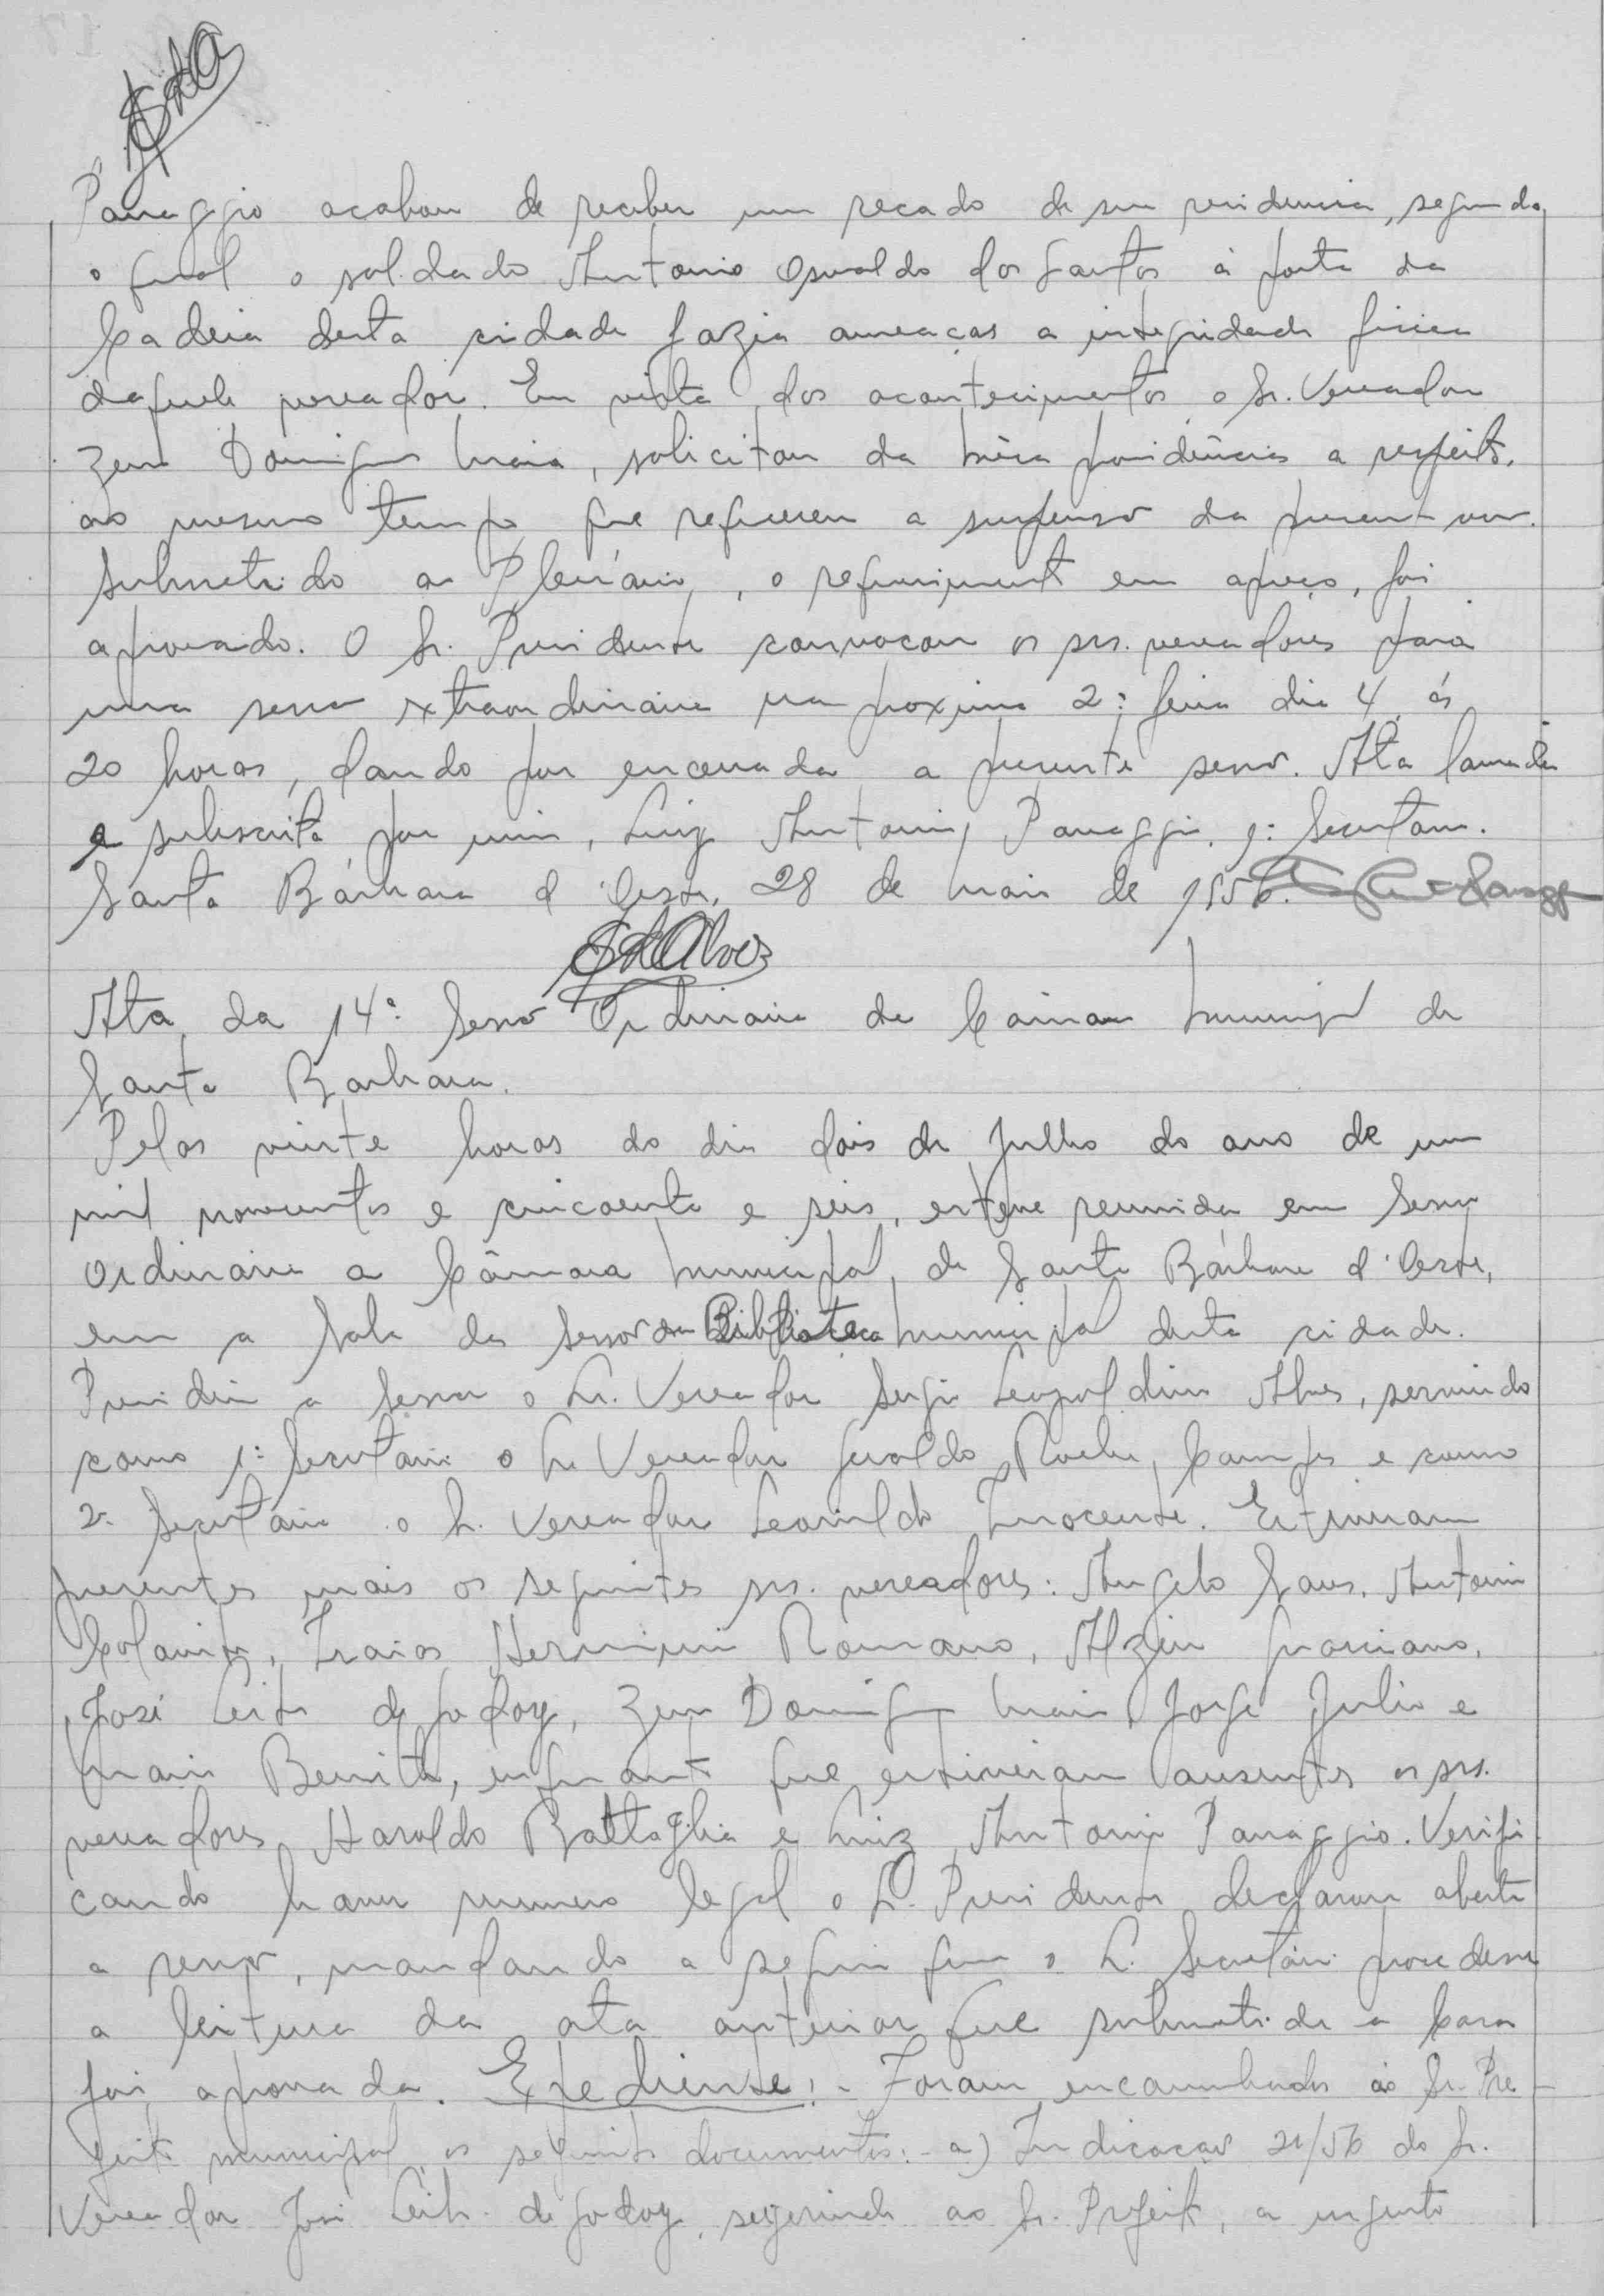 Panaggio acabou de receber um recado de sua residencia, segundo
o qual o soldado Antonio Oswaldo dos Santos à porta da
Cadeia desta cidade fazia ameaças a integridade fisica
daquele vereador. Em vista dos acontecimentos o Sr. Vereador
Zeno Domingos Maia, solicitou da Mêsa providências a respeito,
ao mesmo tempo que requereu a suspensão da presente sessão.
Submetido ao Plenário, o requerimento em apreço, foi
aprovado. O Sr. Presidente convocou os srs. vereadores para
uma sessão extraordinaria na proxima 2ª feira dia 4, ás
20 horas, dando por encerrada a presente sessão. Ata lavrada
e subscrita por mim, Luiz Antonio Panaggio, 1º Secretario.
Santa Bárbara d'Oeste, 28 de Maio de 1956.
SLAlves
Ata da 14ª Sessão Ordinaria da Camara Municipal de
Santa Barbara.
Pelas vinte horas do dia dois de Julho do ano de um
mil novecentos e cincoenta e seis, esteve reunida em Sessão
Ordinaria a Câmara Municipal, de Santa Bárbara d'Oeste,
em a Sala das Sessões da Biblioteca Municipal desta cidade.
Presidiu a Sessão o Sr. Vereador Sergio Leopoldino Alves, servindo
como 1º Secretario o Sr. Vereador Geraldo Rocha Campos e como
2º Secretário o Sr. Vereador Leonildo Innocente. Estiveram
presentes mais os seguintes srs. vereadores: Angelo Sans, Antonio
Isaias Herminio Romano, Alzin Graciano,
José Leite de Godoy, Zeno Domingos Maia, Jorge Julio e
Mario Benito, enquanto que estiveram ausentes os srs.
vereadores Haroldo Battaglia e Luiz Antonio Panaggio. Verifi
cando haver numero legal o Sr. Presidente declarou aberta
a sessão, mandando a seguir que o Sr. Secretário procedesse
a leitura da ata anterior que submetida a Casa
foi aprovada. Expediente:- Foram encaminhados ao Sr. Pre-
feito municipal os seguintes documentos:- a) Indicação 21/56 do Sr.
Vereador José Leite de Godoy, sugerindo ao Sr. Prefeito, a urgente